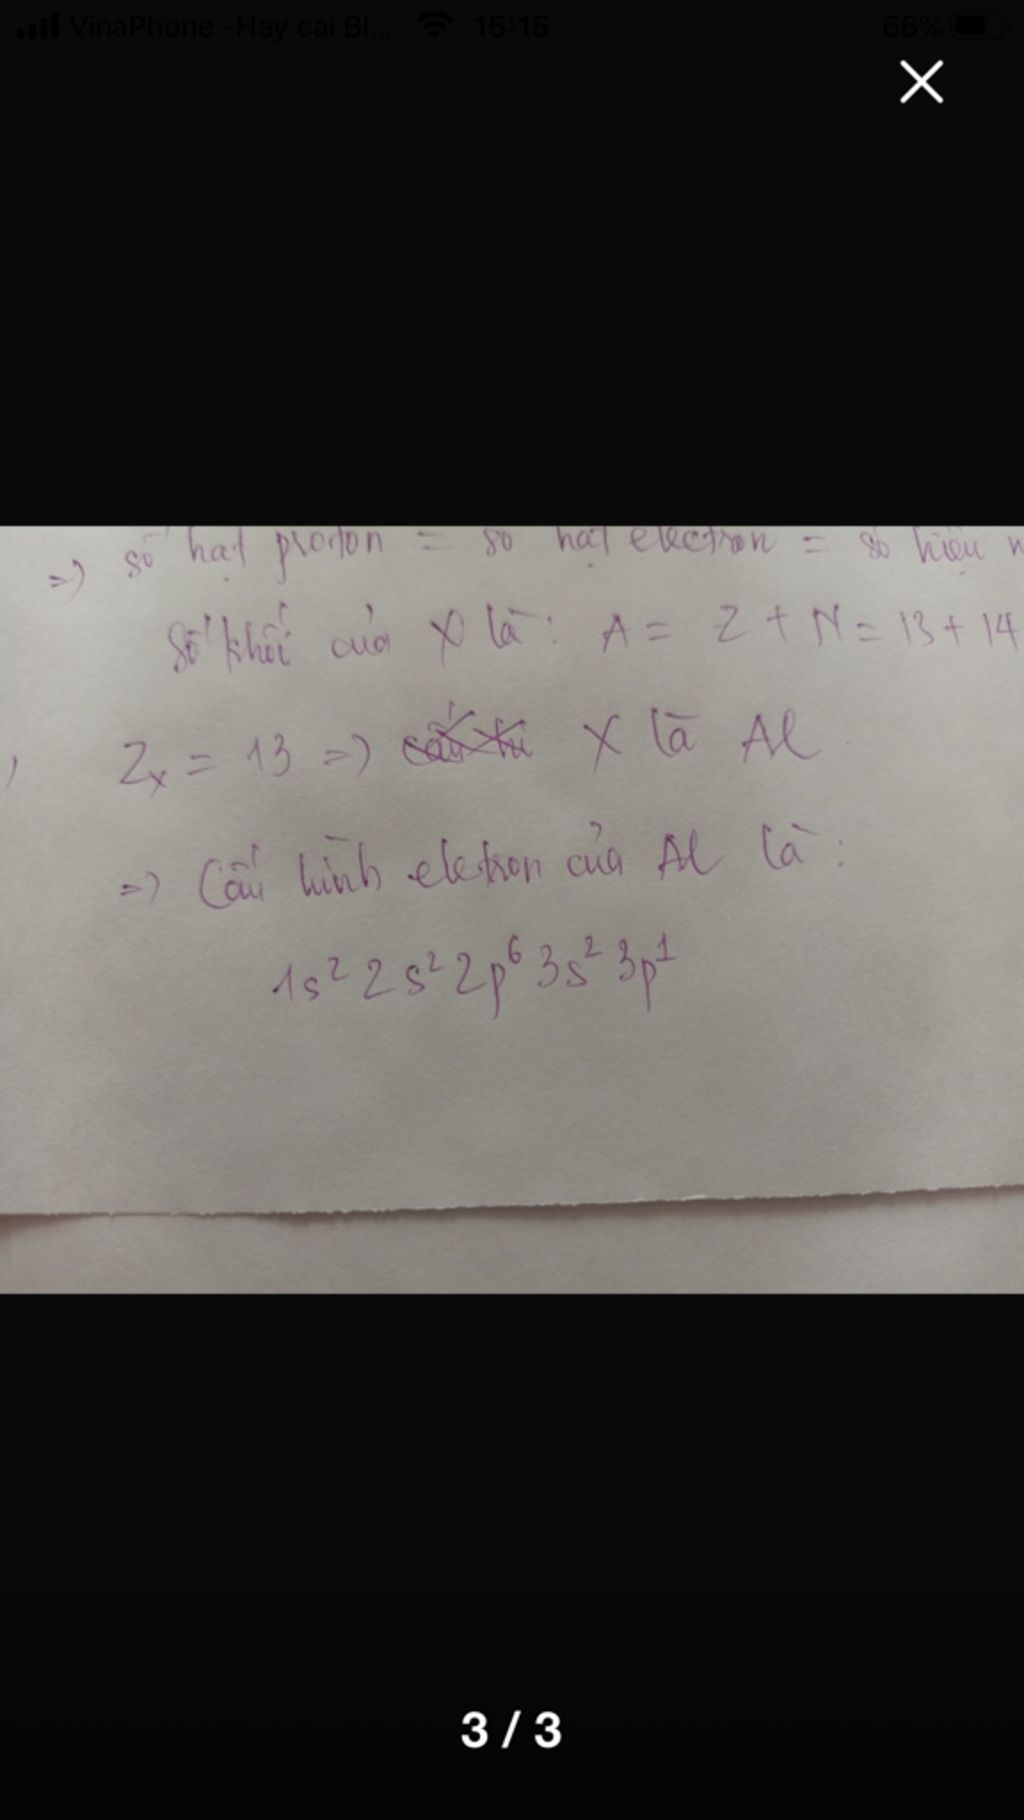 VinaPhone -Hay cai Bl... 15:15 66%
=) số hạt proton = số hạt electron = số hiệu
Số khối của X là: A = Z + N = 13 + 14
Zx = 13 =) X là Al
=) Cấu hình eletron của Al là:
1s² 2s² 2p⁶ 3s² 3p¹
3 / 3